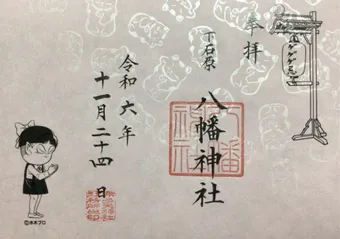 奉拝
下石原
八幡神社
令和六年
十一月二十四日
©水木プロ